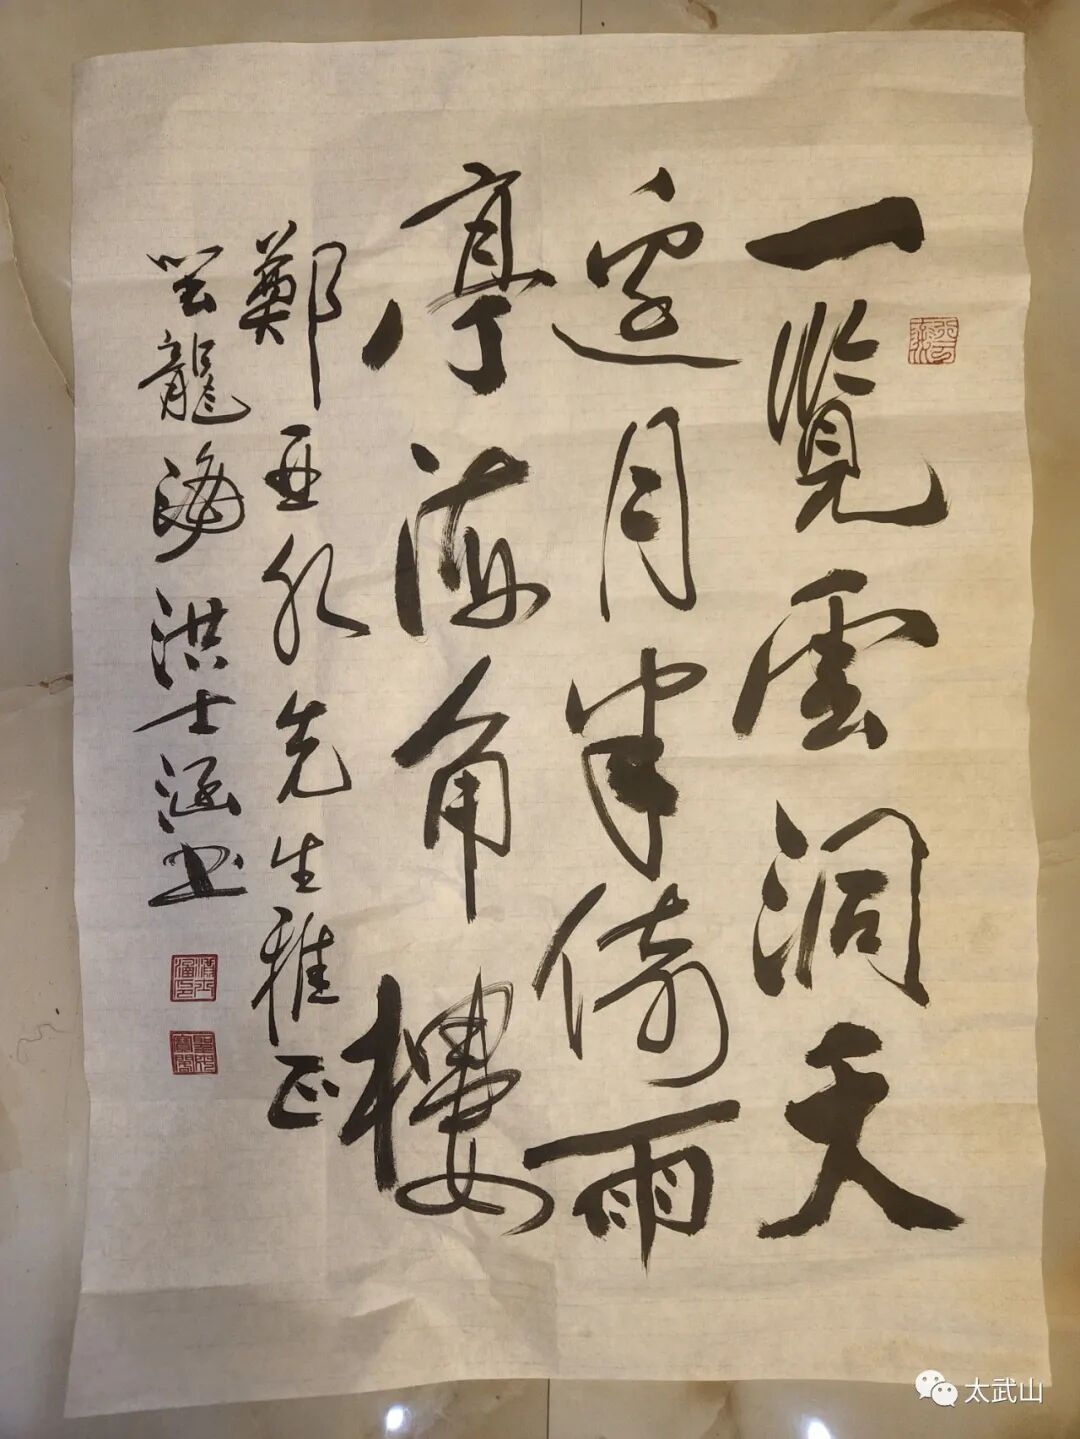 一覽雲洞天
邊月半倚雨
亭海角樓
鄭亞水先生雅正
龍海洪士涵書
太武山